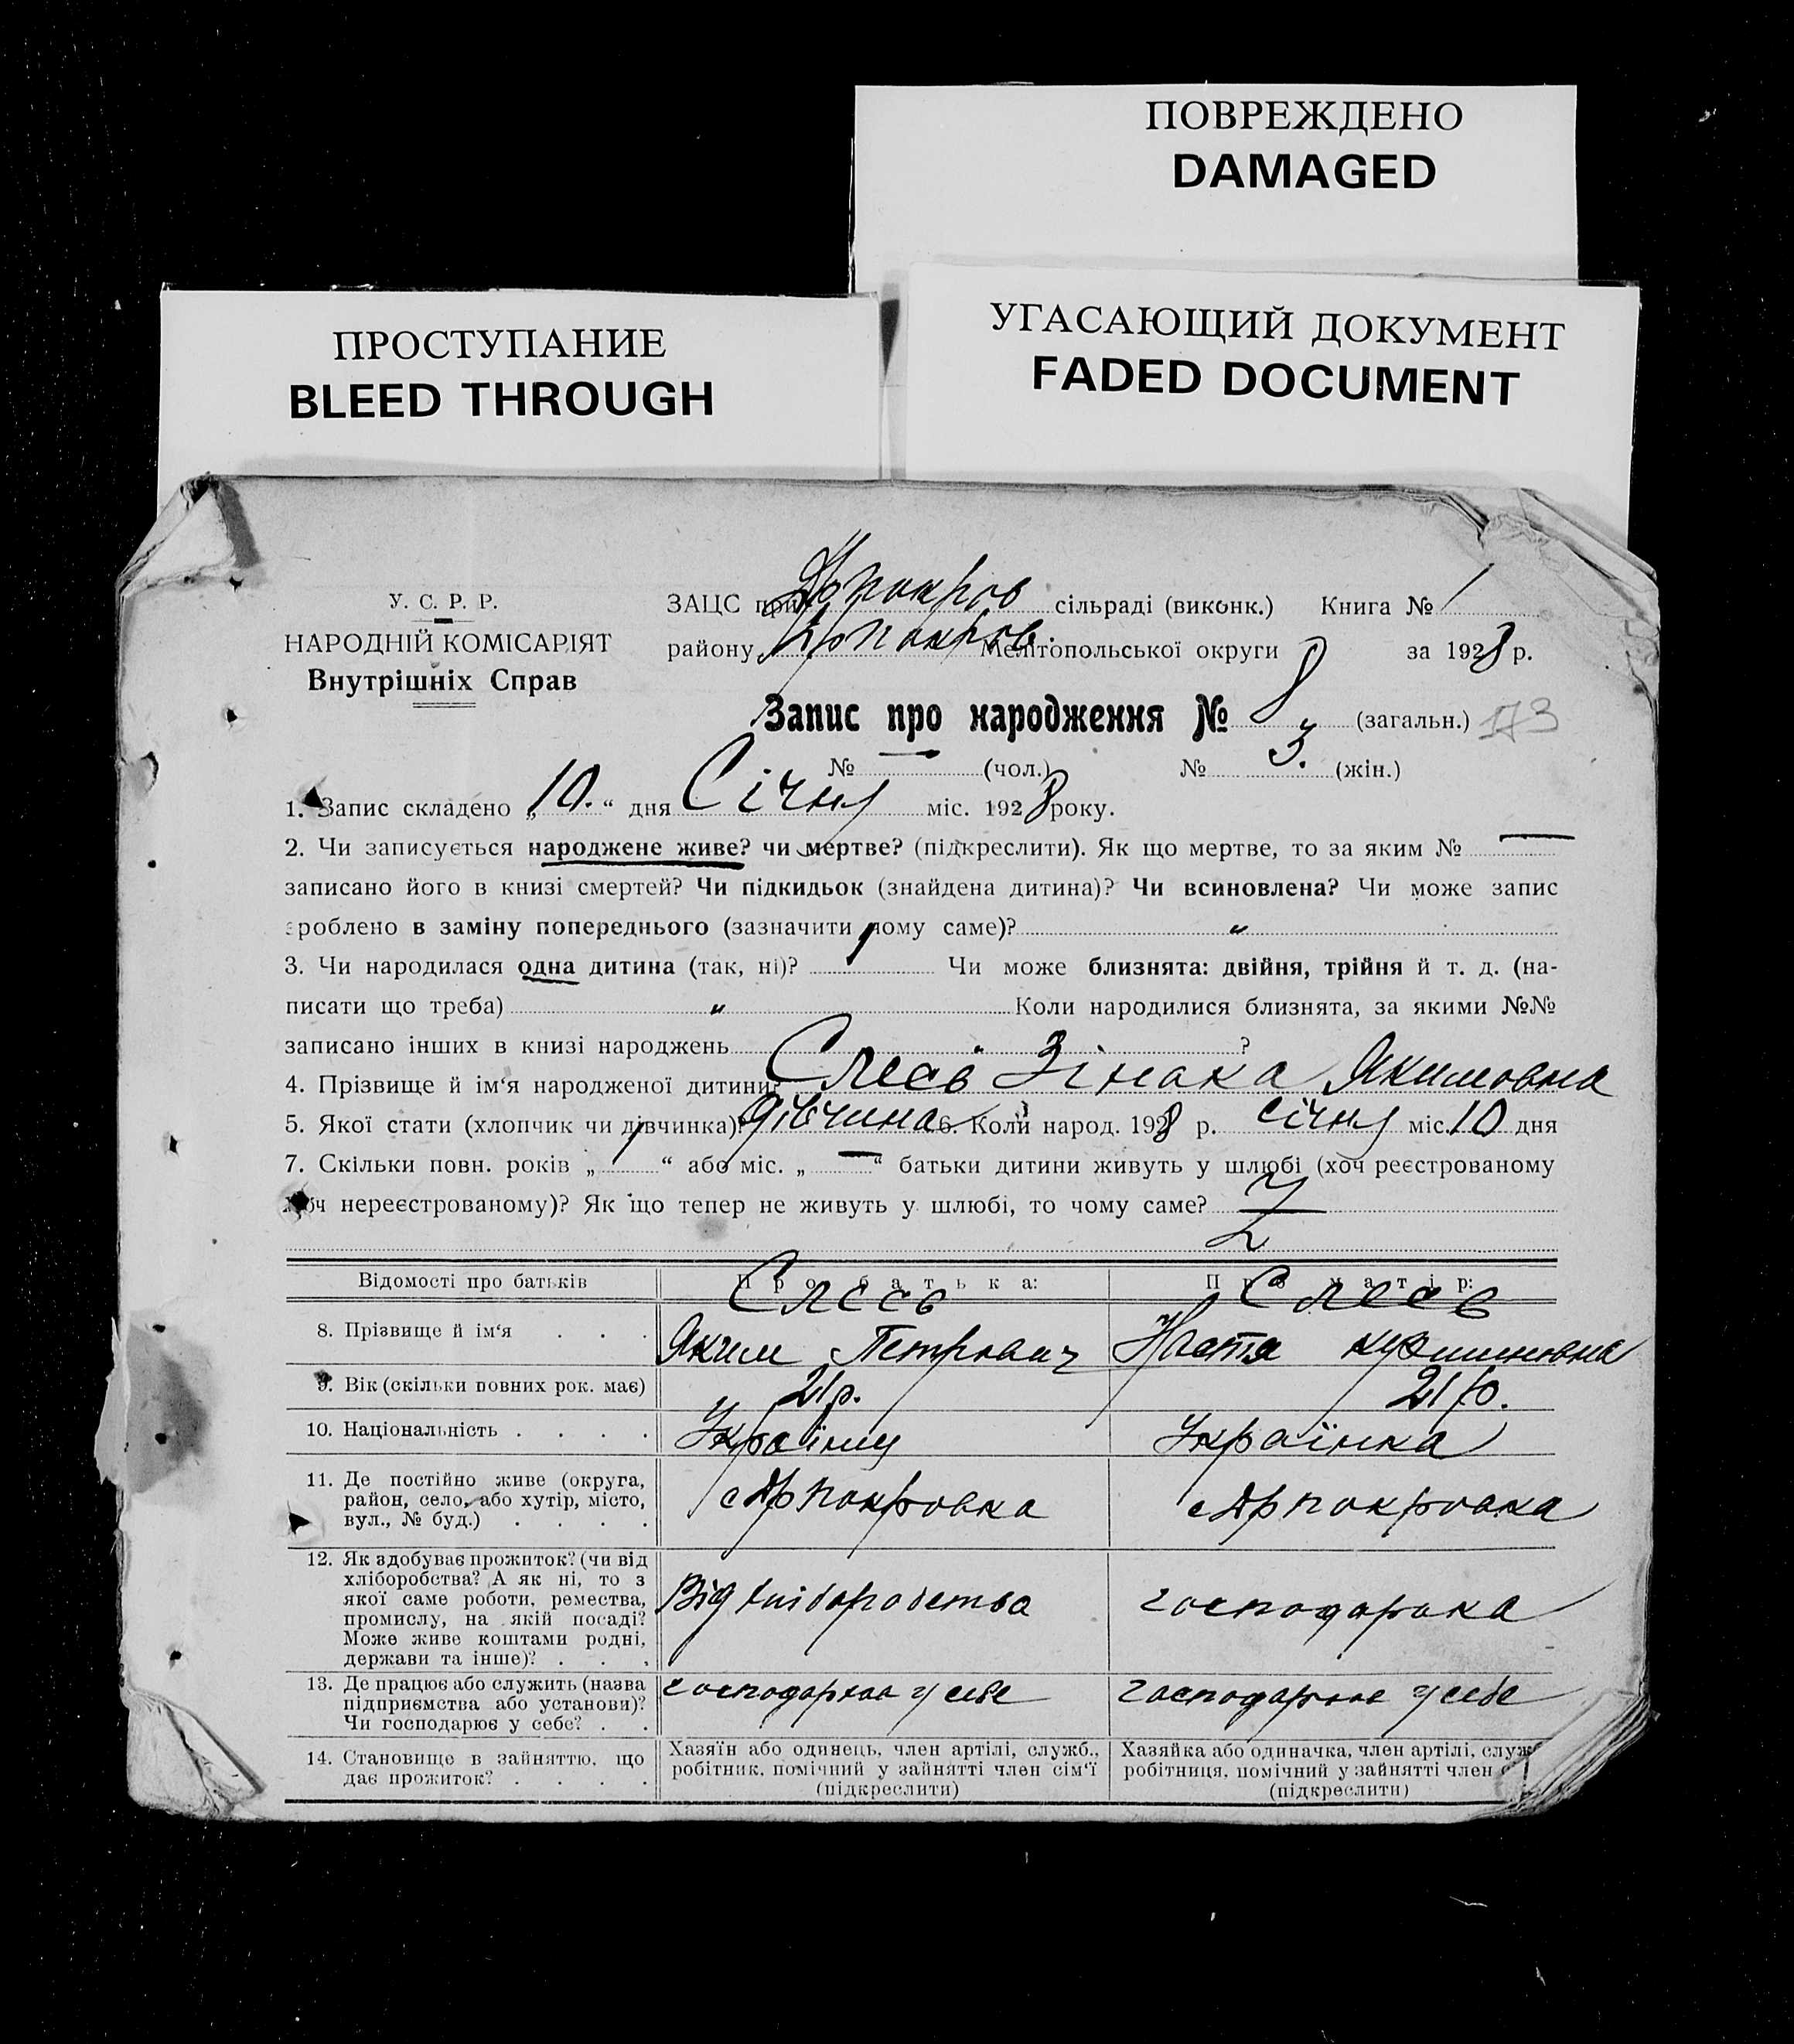 ПОВРЕЖДЕНО
DAMAGED
ПРОСТУПАНИЕ
BLEED THROUGH
УГАСАЮЩИЙ ДОКУМЕНТ
FADED DOCUMENT
У. С. Р. Р.
НАРОДНІЙ КОМІСАРІЯТ
Внутрішніх Справ
ЗАЦС при сільраді (виконк.) Книга № 1
району Мелітопольської округи за 1928 р.
Запис про народження № 8 (загальн.) 173
№ — (чол.) № 3. (жін.)
1. Запис складено „10.“ дня Січня міс. 1928 року.
2. Чи записується народжене живе? чи мертве? (підкреслити). Як що мертве, то за яким № —
записано його в книзі смертей? Чи підкидьок (знайдена дитина)? Чи всиновлена? Чи може запис
зроблено в заміну попереднього (зазначити чому саме)? „
3. Чи народилася одна дитина (так, ні)? Чи може близнята: двійня, трійня й т. д. (на-
писати що треба) „ Коли народилися близнята, за якими №№
записано інших в книзі народжень ?
4. Прізвище й ім‘я народженої дитини? Слєсь Зінака Якимовна
5. Якої стати (хлопчик чи дівчинка)? дівчина 6. Коли народ. 1928 р. січня міс. 10 дня
7. Скільки повн. років „ 1 “ або міс. „ — “ батьки дитини живуть у шлюбі (хоч реєстрованому
хоч нереєстрованому)? Як що тепер не живуть у шлюбі, то чому саме?
Відомості про батьків Про батька: Про матір:
8. Прізвище й ім‘я . . . Слєсь Яким Петрович Слєсь Настя
9. Вік (скільки повних рок. має) 21 р. 21 р.
10. Національність . . . . Українец Українка
11. Де постійно живе (округа,
район, село, або хутір, місто,
вул., № буд.) . . . .
12. Як здобуває прожиток? (чи від
хліборобства? А як ні, то з
якої саме роботи, ремества,
промислу, на якій посаді?
Може живе коштами родні,
держави та інше)? . . .
Від хліборобства господарка
13. Де працює або служить (назва
підприємства або установи)?
Чи господарює у себе? . .
господарює у себе господарює у себе
14. Становище в зайняттю, що
дає прожиток? . . . .
Хазяїн або одинець, член артілі, служб.,
робітник, помічний у зайнятті член сім‘ї
(підкреслити)
Хазяйка або одиначка, член артілі, служб
робітниця, помічний у зайнятті член
(підкреслити)